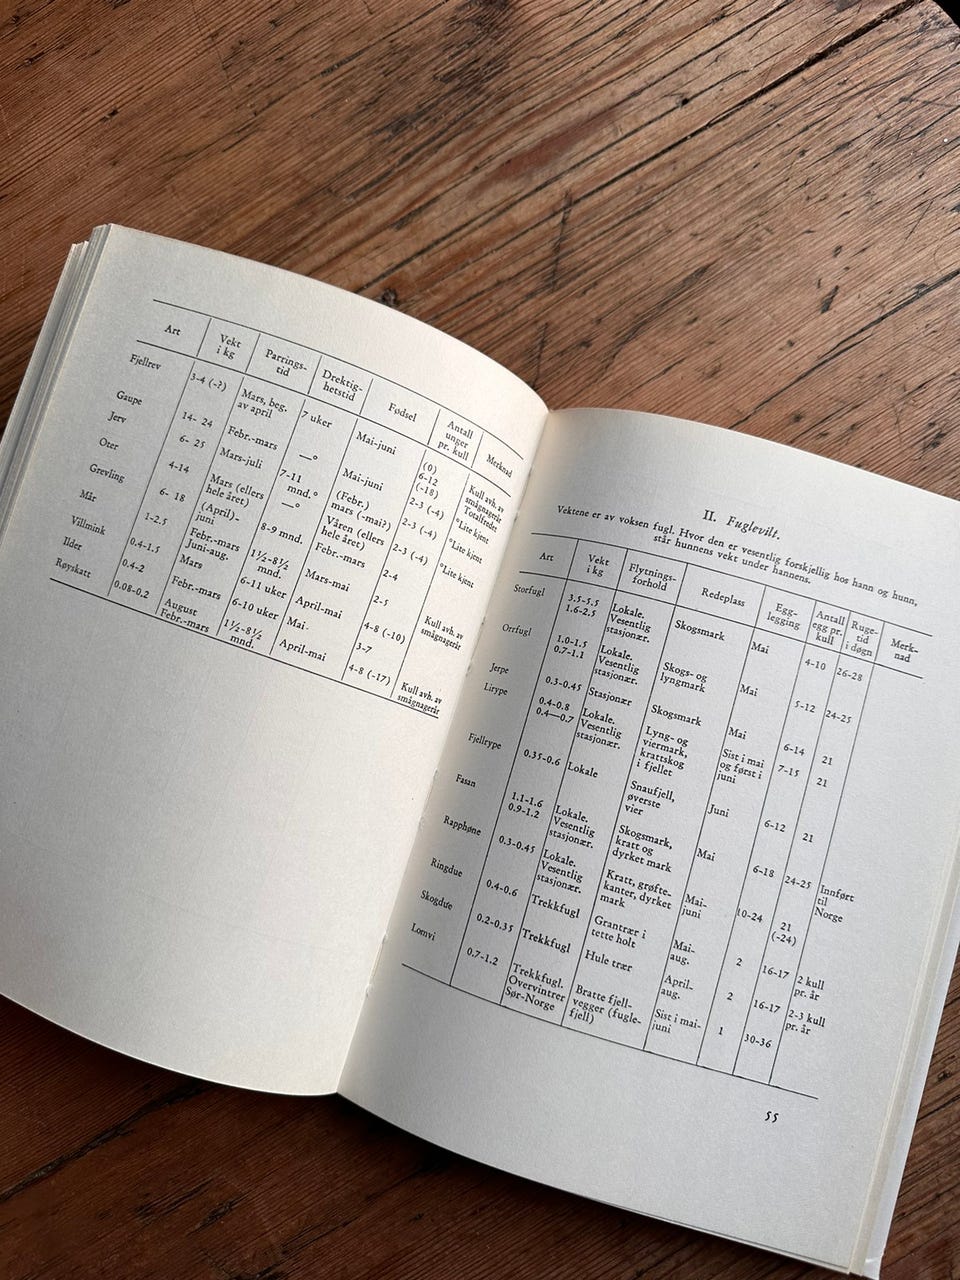 Art
Vekt
i kg
Parrings-
tid
Drektig-
hetstid
Fødsel
Antall
unger
pr. kull
Merknad
Fjellrev
3-4 (-?)
Mars, beg.
av april
7 uker
Mai-juni
(0)
6-12
(-18)
Kull avh. av
smågnagerår
Totalfredet
Gaupe
14- 24
Febr.-mars
—°
Mai-juni
2-3 (-4)
°Lite kjent
Jerv
6- 25
Mars-juli
7-11
mnd.°
(Febr.)
mars (-mai?)
2-3 (-4)
°Lite kjent
Oter
4-14
Mars (ellers
hele året)
—°
Våren (ellers
hele året)
2-3 (-4)
°Lite kjent
Grevling
6- 18
(April)-
juni
8-9 mnd.
Febr.-mars
2-4
Mår
1-2.5
Febr.-mars
Juni-aug.
1½-8½
mnd.
Mars-mai
2-5
Kull avh. av
smågnagerår
Villmink
0.4-1.5
Mars
6-11 uker
April-mai
4-8 (-10)
Ilder
0.4-2
Febr.-mars
6-10 uker
Mai
3-7
Røyskatt
0.08-0.2
August
Febr.-mars
1½-8½
mnd.
April-mai
4-8 (-17)
Kull avh. av
smågnagerår
II. Fuglevilt.
Vektene er av voksen fugl. Hvor den er vesentlig forskjellig hos hann og hunn,
står hunnens vekt under hannens.
Art
Vekt
i kg
Flytnings-
forhold
Redeplass
Egg-
legging
Antall
egg pr.
kull
Ruge-
tid
i døgn
Merk-
nad
Storfugl
3.5-5.5
1.6-2.5
Lokale.
Vesentlig
stasjonær.
Skogsmark
Mai
4-10
26-28
Orrfugl
1.0-1.5
0.7-1.1
Lokale.
Vesentlig
stasjonær.
Skogs- og
lyngmark
Mai
5-12
24-25
Jerpe
0.3-0.45
Stasjonær
Skogsmark
Mai
6-14
21
Lirype
0.4-0.8
0.4—0.7
Lokale.
Vesentlig
stasjonær.
Lyng- og
viermark,
krattskog
i fjellet
Sist i mai
og først i
juni
7-15
21
Fjellrype
0.35-0.6
Lokale
Snaufjell,
øverste
vier
Juni
6-12
21
Fasan
1.1-1.6
0.9-1.2
Lokale.
Vesentlig
stasjonær.
Skogsmark,
kratt og
dyrket mark
Mai
6-18
24-25
Innført
til
Norge
Rapphøne
0.3-0.45
Lokale.
Vesentlig
stasjonær.
Kratt, grøfte-
kanter, dyrket
mark
Mai-
juni
10-24
21
(-24)
Ringdue
0.4-0.6
Trekkfugl
Grantrær i
tette holt
Mai-
aug.
2
16-17
2 kull
pr. år
Skogdue
0.2-0.35
Trekkfugl
Hule trær
April-
aug.
2
16-17
2-3 kull
pr. år
Lomvi
0.7-1.2
Trekkfugl.
Overvintrer
Sør-Norge
Bratte fjell-
vegger (fugle-
fjell)
Sist i mai-
juni
1
30-36
55